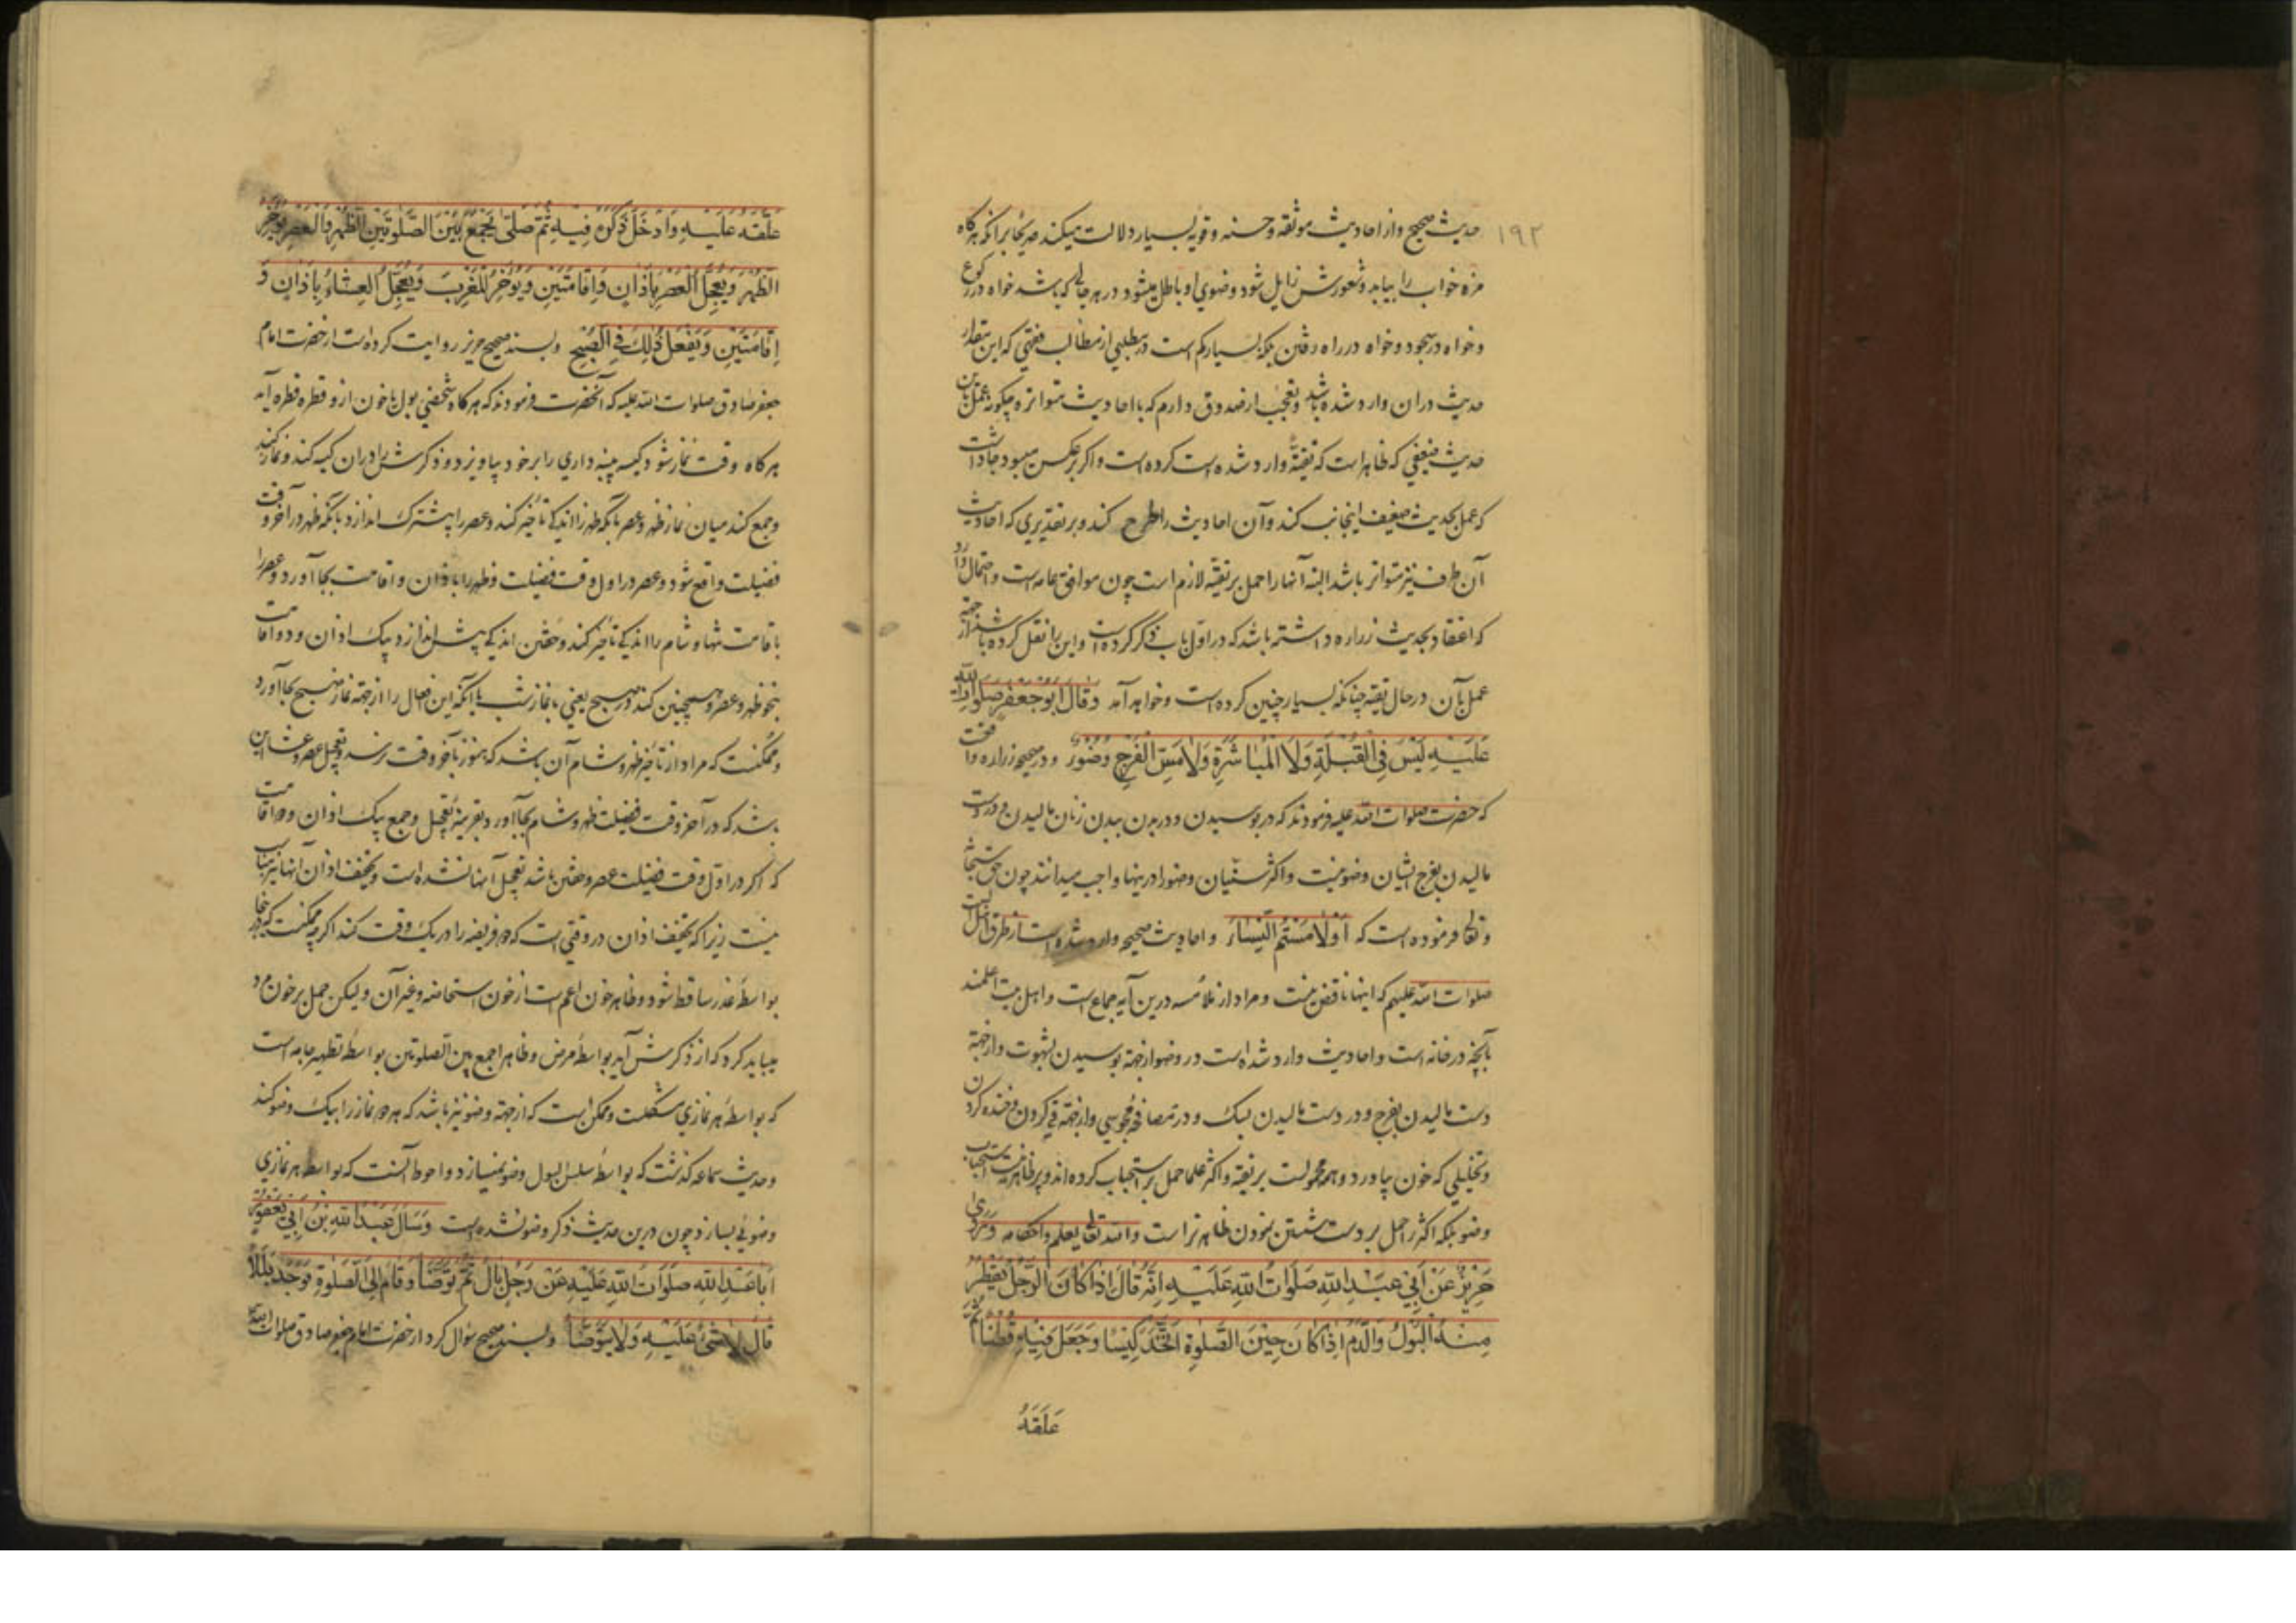 ۱۹۲
حدیث صحیح و از احادیث موثقه و حسنه و قویه بسیار دلالت میکند صریحا برانکه هرکاه
مزه خواب را بیابد و شعورش زایل شود وضوی او باطل میشود در هر حالی که باشد خواه در رکوع
و خواه در سجود و خواه در راه رفتن بلکه بسیار کم است در مطلبی از مطالب فقهی که این مقدار
حدیث دران وارد شده باشد و تعجب از صدوق دارم که با احادیث متواتره چکونه عمل باین
حدیث ضعیفی که ظاهر است که تقیةً وارد شده است کرده است و اکر برعکس میبود جا داشت
که عمل بحدیث ضعیف اینجانب کند و آن احادیث را طرح کند و بر تقدیری که احادیث
آن طرف نیز متواتر باشد البته آنها را حمل بر تقیه لازم است چون موافق عامه است و احتمال دارد
که اعتقاد بحدیث زراره داشته باشد که در اول باب ذکر کرده است و این را نقل کرده باشد از جهة
عمل بآن در حال تقیه چنانکه بسیار چنین کرده است و خواهد آمد وَقالَ اَبُو جَعْفَرٍ صَلَوات الله
عَلَیْهِ لَیْسَ فِی الْقُبْلَةِ وَلَا الْمُباشَرَةِ وَلا مَسِّ الْفَرْجِ وُضُوءٌ و در صحیحه زراره واقعست
که حضرت صلوات الله علیه فرمودند که در بوسیدن و در بدن ببدن زنان مالیدن و در دست
مالیدن بفرج ایشان وضو نیست و اکثر سنیان وضو را درینها واجب میدانند چون حق سبحانه
و تعالی فرموده است که اَوْ لامَسْتُمُ النِّساءَ و احادیث صحیحه وارد شده است از طرق اهل بیت
صلوات الله علیهم که اینها ناقض نیست و مراد از ملامسه درین آیه جماع است و اهل بیت اعلمند
بآنچه در خانه است و احادیث وارد شده است در وضو از جهة بوسیدن بشهوت و از جهة
دست مالیدن بفرج و در دست مالیدن بسک و در مصافحه مجوسی و از جهة قی کردن و خنده کردن
و تخلیلی که خون بیاورد و همه محمولست بر تقیه و اکثر علما حمل بر استحباب کرده‌اند و پر ظاهر نیست استحباب
وضو بلکه اکثر را حمل بر دست شستن نمودن ظاهرتر است و الله تعالی یعلم و احکامه وَ رَوی
حَرِیزٌ عَنْ اَبی عَبْدِ اللهِ صَلَواتُ اللهِ عَلَیْهِ اِنَّهُ قالَ اِذا کانَ الرَّجُلُ یَقْطُرُ
مِنْهُ الْبَوْلُ وَالدَّمُ اِذا کانَ حِینَ الصَّلوةِ اتَّخَذَ کِیسًا وَجَعَلَ فِیهِ قُطْنًا ثُمَّ
عَلَّقَهُ
عَلَّقَهُ عَلَیْهِ وَاَدْخَلَ ذَکَرَهُ فِیهِ ثُمَّ صَلّی یَجْمَعُ بَیْنَ الصَّلوتَیْنِ الظُّهْرِ وَالْعَصْرِ یُؤَخِّرُ
الظُّهْرَ وَیُعَجِّلُ الْعَصْرَ بِاَذانٍ وَاِقامَتَیْنِ وَیُؤَخِّرُ الْمَغْرِبَ وَیُعَجِّلُ الْعِشاءَ بِاَذانٍ وَ
اِقامَتَیْنِ وَیَفْعَلُ ذلِکَ فِی الصُّبْحِ و بسند صحیح حریز روایت کرده است از حضرت امام
جعفر صادق صلوات الله علیه که آنحضرت فرمودند که هرکاه شخصی بول یا خون ازو قطره قطره آید
هرکاه وقت نماز شود کیسه پنبه داری را بر خود بیاویزد و ذکرش را دران کیسه کند و نماز کند
و جمع کند میان نماز ظهر و عصر بآنکه ظهر را اندکی تاخیر کند و عصر را پیشترک اندازد بآنکه ظهر در آخر وقت
فضیلت واقع شود و عصر در اول وقت فضیلت و ظهر را باذان و اقامت بجا آورد و عصر را
باقامت تنها و شام را اندکی تاخیر کند و خفتن اندکی پیش اندازد بیک اذان و دو اقامت
بنحو ظهر و عصر و همچنین کند در صبح یعنی با نماز شب یا آنکه این افعال را از جهة نماز صبح بجا آورد
و ممکنست که مراد از تاخیر ظهر و شام آن باشد که هنوز بآخر وقت نرسد و تعجیل عصر و عشا این
باشد که در آخر وقت فضیلت ظهر و شام بجا آورد بقرینه تعجیل و جمع بیک اذان و دو اقامت
که اکر در اول وقت فضیلت عصر و خفتن باشد تعجیل آنها نشده است و تخفیف اذان آنها نیز مناسب
نیست زیرا که تخفیف اذان در وقتی است که دو فریضه را در یک وقت کند اکرچه ممکنست که در اینجا
بواسطه عذر ساقط شود و ظاهر خون اعم است از خون استحاضه و غیر آن و لیکن حمل بر خون مرد
میباید کرد که از ذکرش آید بواسطه مرض و ظاهرا جمع بین الصلوتین بواسطه تطهیر جامه است
که بواسطه هر نمازی مشکلست و ممکن است که از جهة وضو نیز باشد که هر دو نماز را بیک وضو کند
و حدیث سماعه کذشت که بواسطه سلس البول وضو نمیسازد و احوط آنست که بواسطه هر نمازی
وضوئی بسازد چون درین حدیث ذکر وضو نشده است وَسَاَلَ عَبْدُ اللهِ بْنُ اَبی یَعْفُورٍ
اَبا عَبْدِ اللهِ صَلَواتُ اللهِ عَلَیْهِ عَنْ رَجُلٍ بالَ ثُمَّ تَوَضَّاَ وَقامَ اِلَی الصَّلوةِ فَوَجَدَ بَلَلًا
قالَ لا شَیْءَ عَلَیْهِ وَلا یَتَوَضَّاُ و بسند صحیح سؤال کرد از حضرت امام جعفر صادق صلوات الله